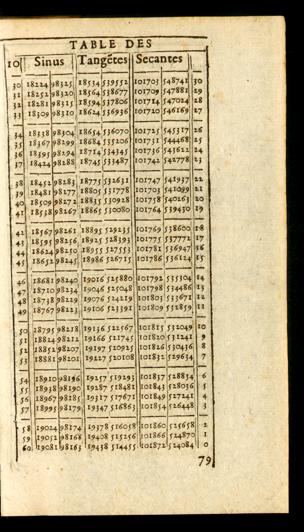 TABLE DES
10 Sinus Tangẽtes Secantes
30 18224 98325 18534 539552 101703 548741 30
31 18252 98320 18564 538677 101709 547881 29
32 18281 98315 18594 537806 101714 547024 28
33 18309 98310 18624 536936 101720 546169 27
34 18338 98304 18654 536070 101725 545317 26
35 18367 98299 18684 535206 101731 544468 25
36 18395 98294 18714 534345 101736 543622 24
37 18424 98288 18745 533487 101742 542778 23
38 18452 98283 18775 532631 101747 541937 22
39 18481 98277 18805 531778 101753 541099 21
40 18509 98272 18835 530928 101758 540263 20
41 18538 98267 18865 530080 101764 539430 19
42 18567 98261 18895 529235 101769 538600 18
43 18595 98256 18925 528393 101775 537772 17
44 18624 98250 18955 527553 101781 536947 16
45 18652 98245 18986 526715 101786 536124 15
46 18681 98240 19016 525880 101792 535304 14
47 18710 98234 19046 525048 101798 534486 13
48 18738 98229 19076 524219 101803 533671 12
49 18767 98223 19106 523391 101809 532859 11
50 18795 98218 19136 522567 101815 532049 10
51 18824 98212 19166 521745 101820 531241 9
52 18852 98207 19197 520925 101826 530436 8
53 18881 98201 19227 520108 101832 529634 7
54 18910 98196 19257 519293 101837 528834 6
55 18938 98190 19287 518481 101843 528036 5
56 18967 98185 19317 517671 101849 527241 4
57 18995 98179 19347 516863 101854 526448 3
58 19024 98174 19378 516058 101860 525658 2
59 19052 98168 19408 515256 101866 524870 1
60 19081 98163 19438 514455 101872 524084 0
79